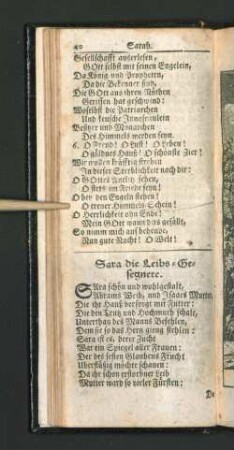 40 Sarah.
Gesellschafft auserlesen,
GOtt selbst mit seinen Engelein,
Da König und Propheten,
Da die Bekenner sind,
Die GOtt aus ihren Nöthen
Gerissen hat geschwind:
Woselbst die Patriarchen
Und keusche Jungfräulein
Besitzer und Monarchen
Des Himmels werden seyn.
6. O Freud! O Lust! O Leben!
O güldnes Hauß! O schönste Zier!
Wir wollen kräfftig streben
In dieser Sterblichkeit nach dir:
O GOttes Antlitz sehen,
O stets im Friede seyn!
O bey den Engeln stehen!
O treuer Himmels-Schein!
O Herrlichkeit ohn Ende!
Mein GOtt wann dirs gefällt,
So nimm mich auf behende,
Nun gute Nacht! O Welt!
Sara die Leibs-Ge-
segnere.
SAra schön und wohlgestalt,
Abrams Weib, und Isaacs Mutter,
Die ihr Hauß versorgt mit Futter:
Die den Trutz und Hochmuth schalt,
Unterthan des Manns Befehlen,
Dem sie so das Herz gieng stehlen:
Sara ist es, deren Zucht
War ein Spiegel aller Frauen:
Der des festen Glaubens Frucht
Überflüßig möchte schauen:
Da ihr schon erstorbner Leib
Mutter ward so vieler Fürsten: